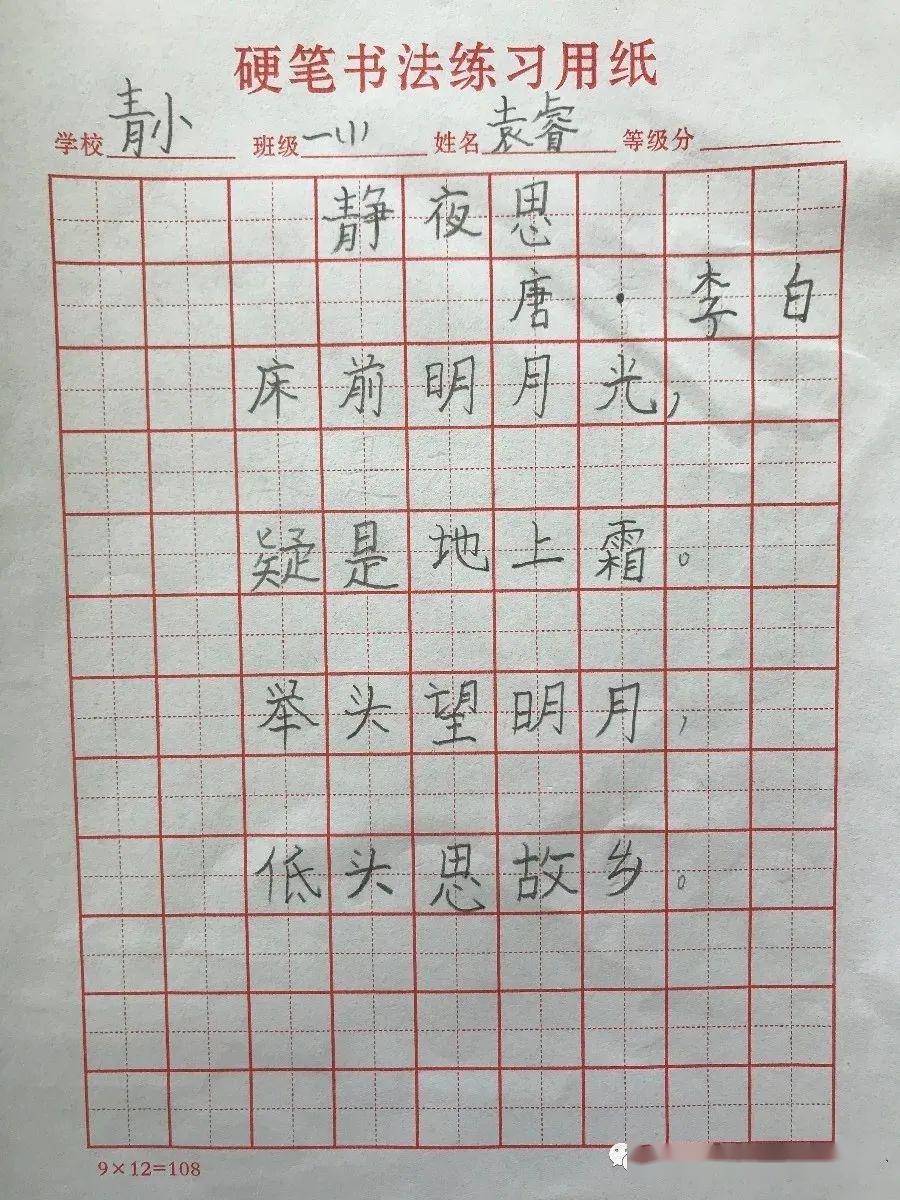 硬笔书法练习用纸
学校 青小 班级 一(1) 姓名 袁睿 等级分
静夜思
唐·李白
床前明月光，
疑是地上霜。
举头望明月，
低头思故乡。
9×12=108